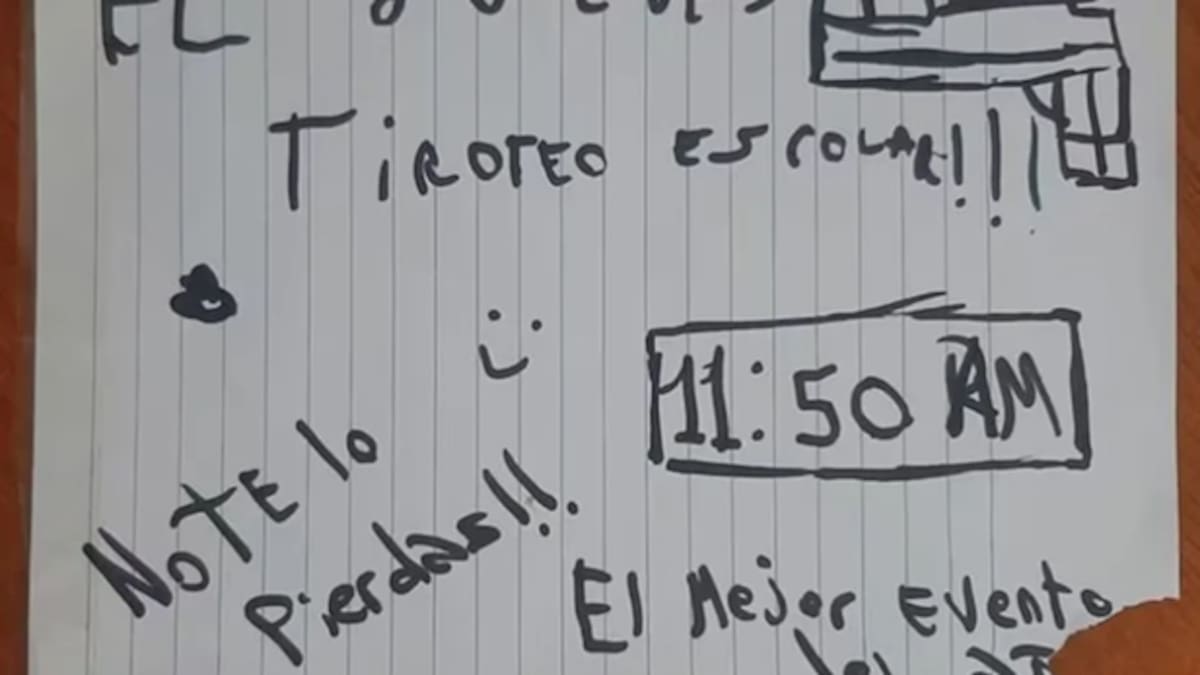 EL
TiROTEO ESCOLAR!!!
11:50 AM
NO TE lo
pierdas!!!
El Mejor Evento